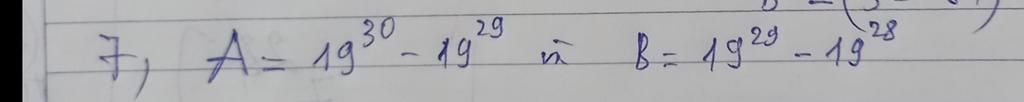 7, A = 19³⁰ - 19²⁹ và B = 19²⁹ - 19²⁸